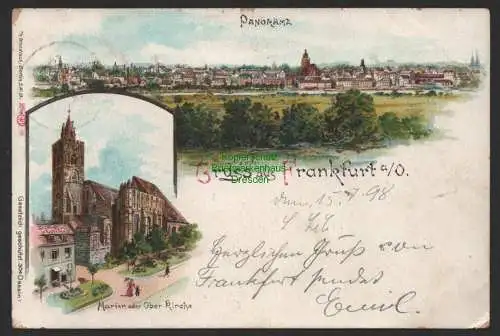 PANORAMA
Gruss aus Frankfurt a/O.
Kopierschutz
Briefmarkenhaus
Dresden
den 15.7.98
Herzlichen Gruß von
Frankfurt sendet
Emil.
Marien oder Ober Kirche